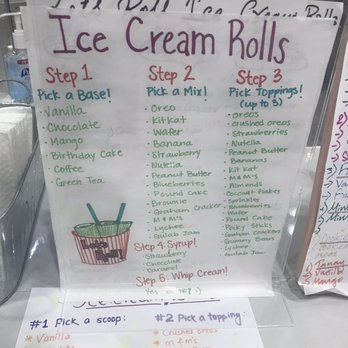 Let's Roll Ice Cream Rolls
Ice Cream Rolls
Step 1
Pick a Base!
· Vanilla
· Chocolate
· Mango
· Birthday Cake
· Coffee
· Green Tea
Step 2
Pick a Mix!
· Oreo
· Kitkat
· Wafer
· Banana
· Strawberry
· Nutella
· Peanut Butter
· Blueberries
· Pound Cake
· Brownie
· Graham Cracker
· M & M's
· Lychee
· Gulab Jam
Step 3
Pick Toppings!
(up to 3)
· Oreos
· crushed oreos
· Strawberries
· Nutella
· Peanut Butter
· Bananas
· Kit Kat
· M & M's
· Almonds
· Coconut flakes
· Sprinkles
· Blueberries
· Wafer
· Pound Cake
· Pocky Sticks
· Graham Crackers
· Gummy Bears
· Lychee
· Gulab Jam
Step 4: Syrup!
· Strawberry
· Chocolate
· Caramel
Step 5: Whip Cream!
Yes or No :)
#1 Pick a scoop:
* Vanilla
#2 Pick a topping:
* Crushed oreos
* m & m's